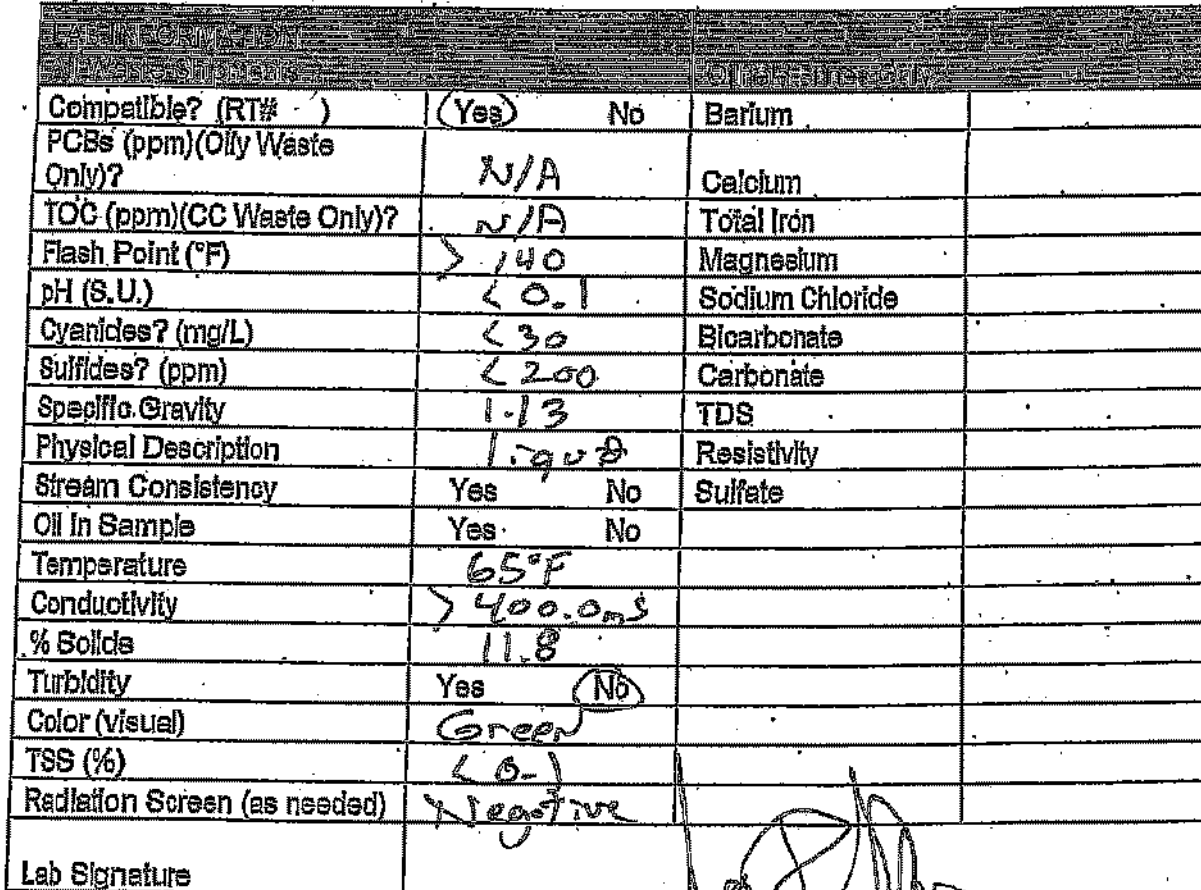 LAB INFORMATION
All Waste Shipments
Compatible? (RT# ) Yes No Barium
PCBs (ppm)(Oily Waste
Only)? N/A Calcium
TOC (ppm)(CC Waste Only)? N/A Total Iron
Flash Point (°F) > 140 Magnesium
pH (S.U.) < 0.1 Sodium Chloride
Cyanides? (mg/L) < 30 Bicarbonate
Sulfides? (ppm) < 200 Carbonate
Specific Gravity 1.13 TDS
Physical Description liquid Resistivity
Stream Consistency Yes No Sulfate
Oil In Sample Yes No
Temperature 65°F
Conductivity > 400.0mS
% Solids 11.8
Turbidity Yes No
Color (visual) Green
TSS (%) < 0.1
Radiation Screen (as needed) Negative
Lab Signature